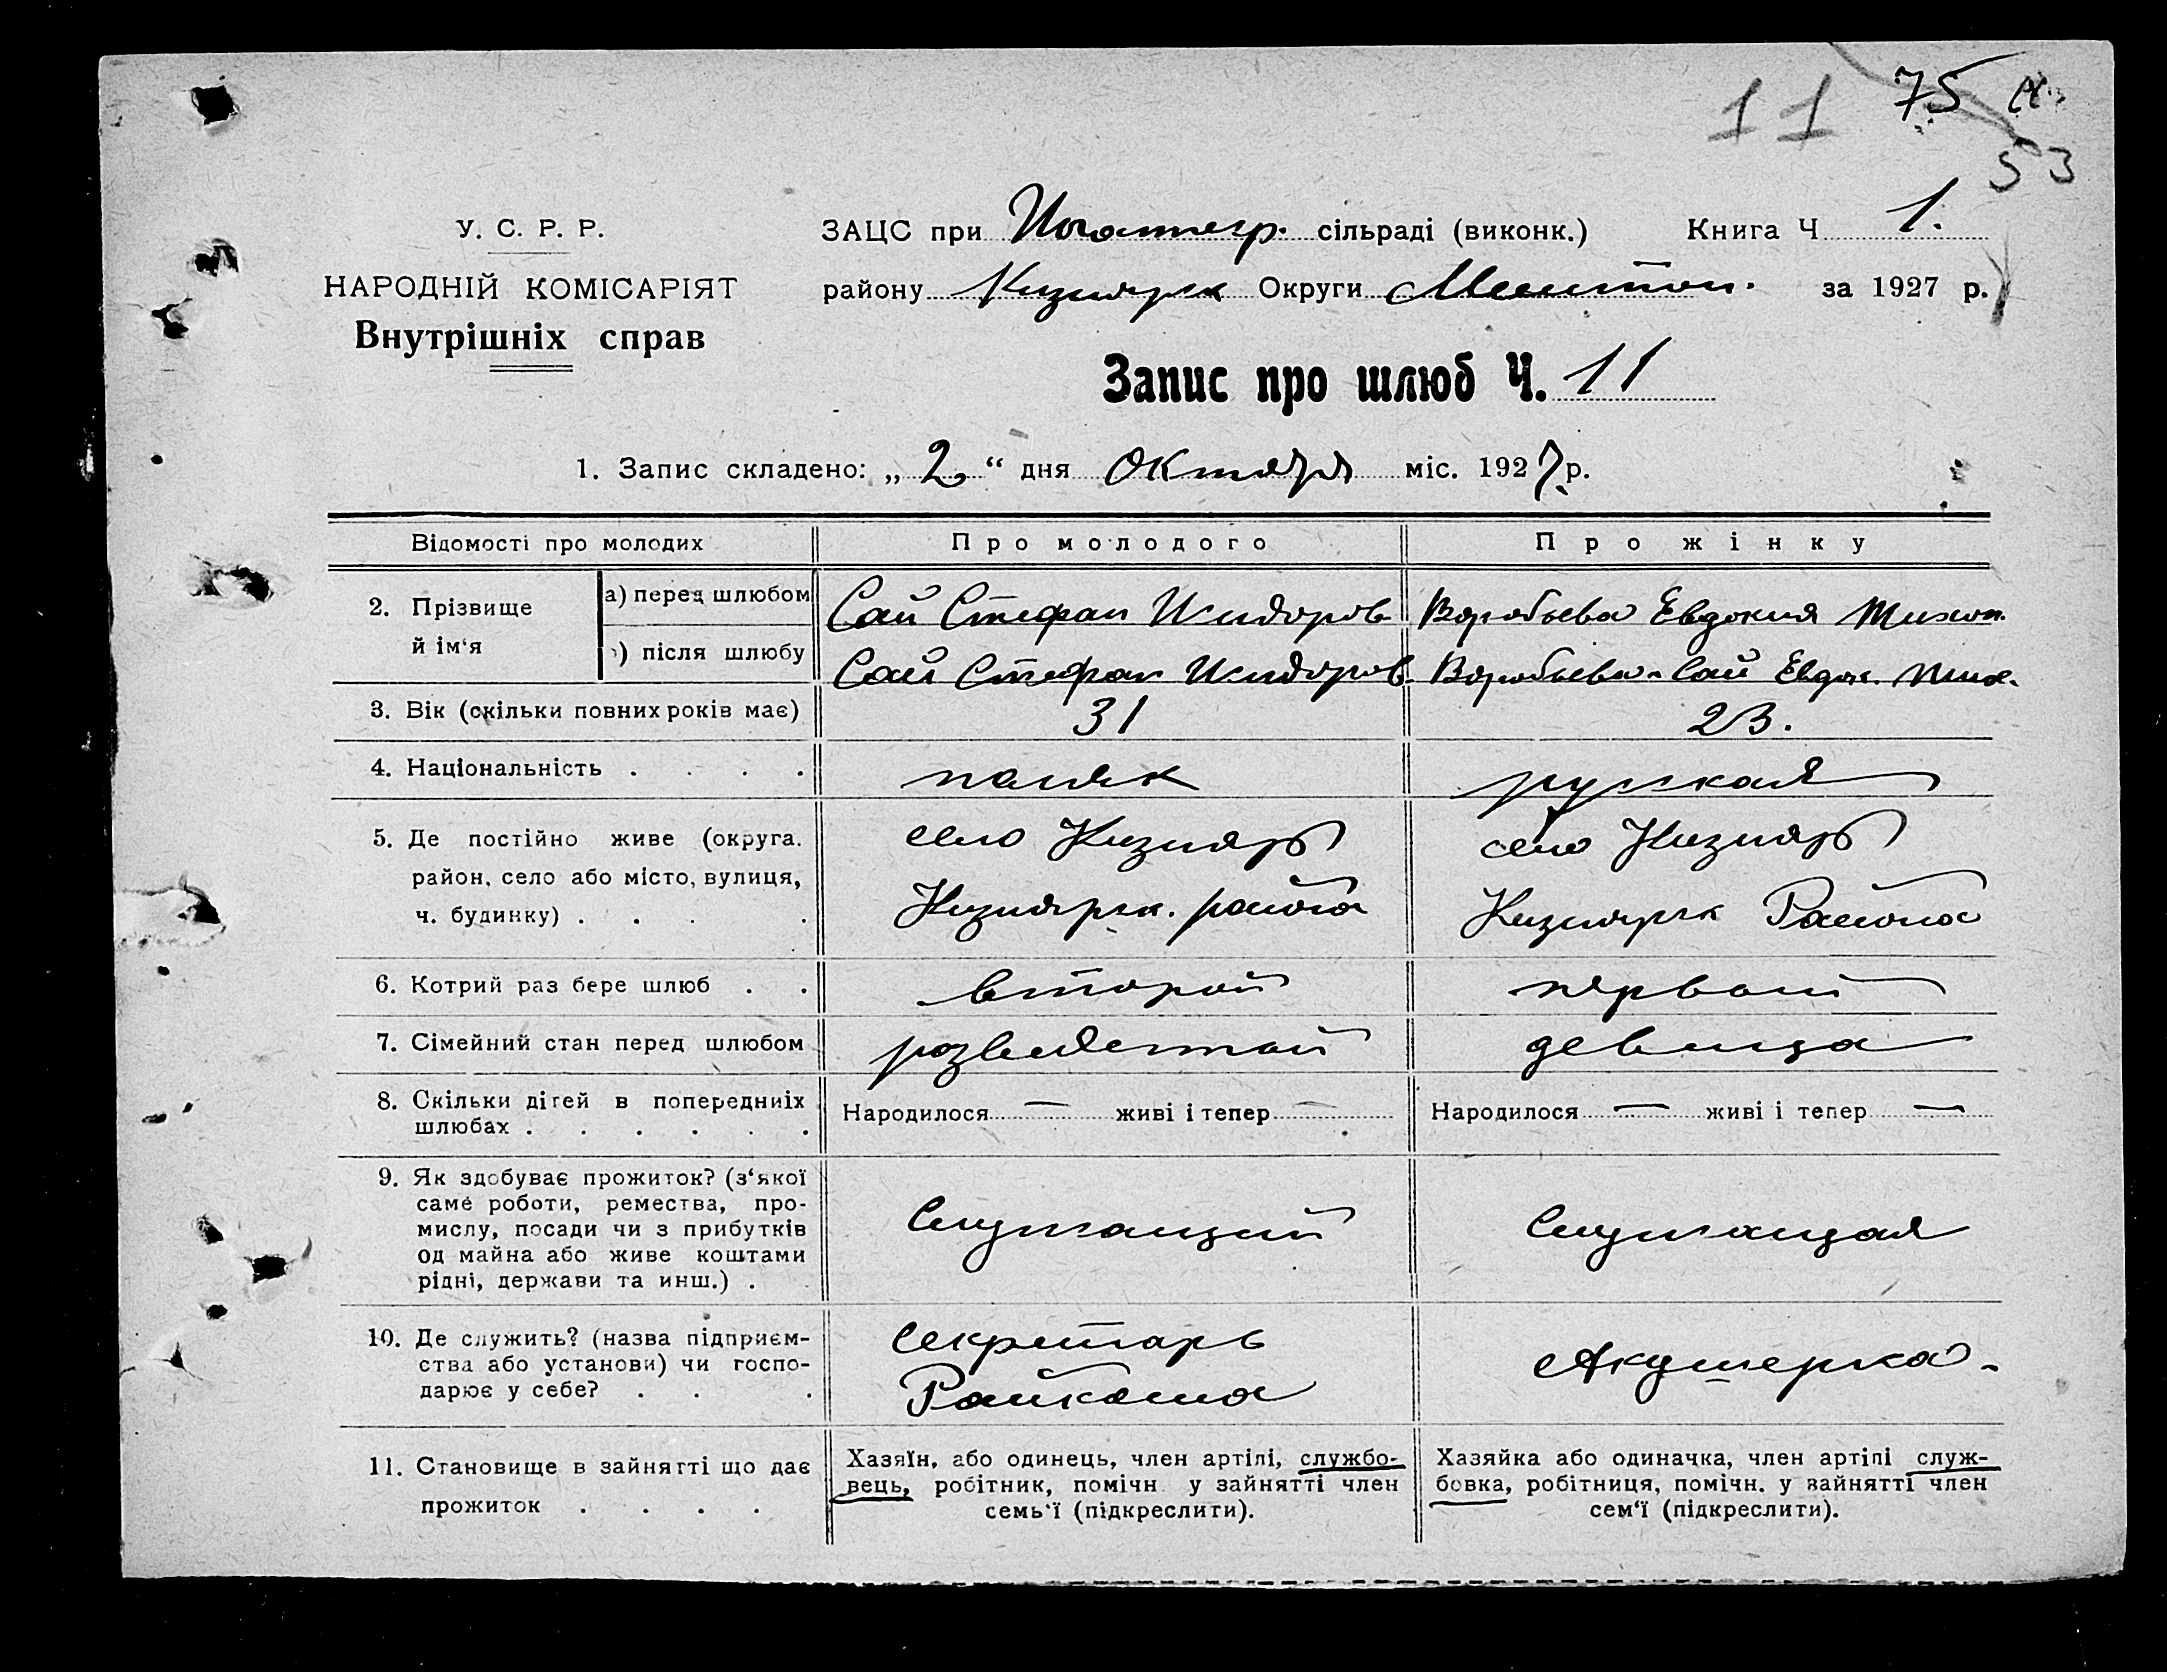 11 75
53
У. С. Р. Р.
НАРОДНІЙ КОМІСАРІЯТ
Внутрішніх справ
ЗАЦС при сільраді (виконк.) Книга Ч 1.
району Кизиярск Округи Мелитоп. за 1927 р.
Запис про шлюб Ч. 11
1. Запис складено: „ 2 “ дня Октября міс. 1927 р.
Відомості про молодих Про молодого Про жінку
2. Прізвище й ім‘я
а) перед шлюбом Сай Стефан Исидоров. Воробьева Евдокия Михол.
) після шлюбу Сай Стефан Исидоров. Воробьева-Сай Евдок. Мих.
3. Вік (скільки повних років має) 31 23.
4. Національність . . . . поляк русская
5. Де постійно живе (округа. село Кизияр село Кизияр
район, село або місто, вулиця, Кизиярск. района Кизиярск Района
ч. будинку) . . . .
6. Котрий раз бере шлюб . . второй первый
7. Сімейний стан перед шлюбом розведенный девица
8. Скільки дітей в попередниіх Народилося — живі і тепер — Народилося — живі і тепер —
шлюбах . . . . . .
9. Як здобуває прожиток? (з‘якої
саме роботи, ремества, про-
мислу, посади чи з прибутків Служащий Служащая
од майна або живе коштами
рідні, держави та инш.) .
10. Де служить? (назва підприєм- Секретарь
ства або установи) чи госпо- Акушерка-
дарює у себе? . . . Райкома
11. Становище в зайнятті що дає
прожиток . . . .
Хазяїн, або одинець, член артілі, службо-
вець, робітник, помічн у зайнятті член
семь‘ї (підкреслити).
Хазяйка або одиначка, член артілі служ-
бовка, робітниця, помічн. у зайнятті член
сем‘ї (підкреслити).